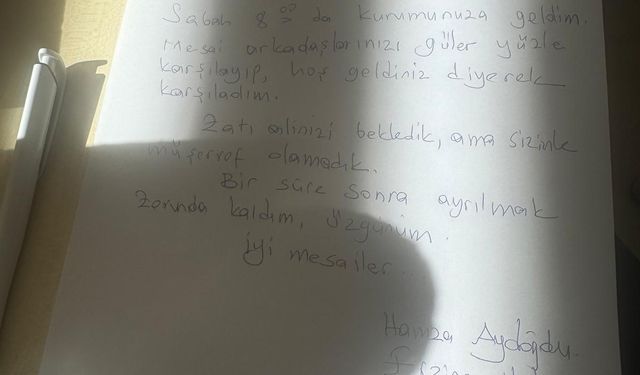 Sabah 8⁰⁰ da kurumunuza geldim.
Mesai arkadaşlarınızı güler yüzle
karşılayıp, hoş geldiniz diyerek
karşıladım.
Zatı alinizi bekledik, ama sizinle
müşerref olamadık.
Bir süre sonra ayrılmak
zorunda kaldım, üzgünüm.
iyi mesailer...
Hamza Aydoğdu.